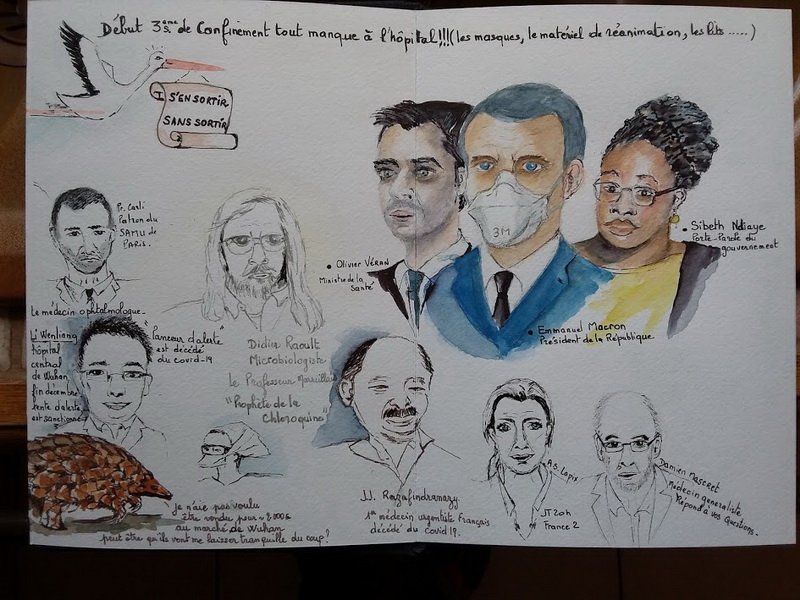 Début 3ème s. de Confinement tout manque à l'hôpital!!!(les masques, le matériel de réanimation, les lits .....)
S'EN SORTIR
SANS SORTIR
Pr. Carli
Patron du
SAMU de
PARIS.
3M
• Olivier VÉRAN
Ministre de la
Santé
• Sibeth Ndiaye
Porte-Parole du
gouvernement
• Emmanuel Macron
Président de la République
Le médecin ophtalmologue
Li Wenliang
hôpital
central
de Wuhan
fin décembre
tente d'alerte
est sanctionné
"lanceur d'alerte"
est décédé
du covid-19
Didier Raoult
Microbiologiste
Le Professeur Marseillais
"Prophète de la
Chloroquine"
JJ. Razafindranazy
1er médecin urgentiste Français
décédé du Covid 19.
A.S. Lapix
JT 20h
France 2
Damien Mascret
Médecin généraliste
Répond à vos Questions.
Je n'aie pas voulu
être vendu pour
au marché de Wuhan
peut être qu'ils vont me laisser tranquille du coup?